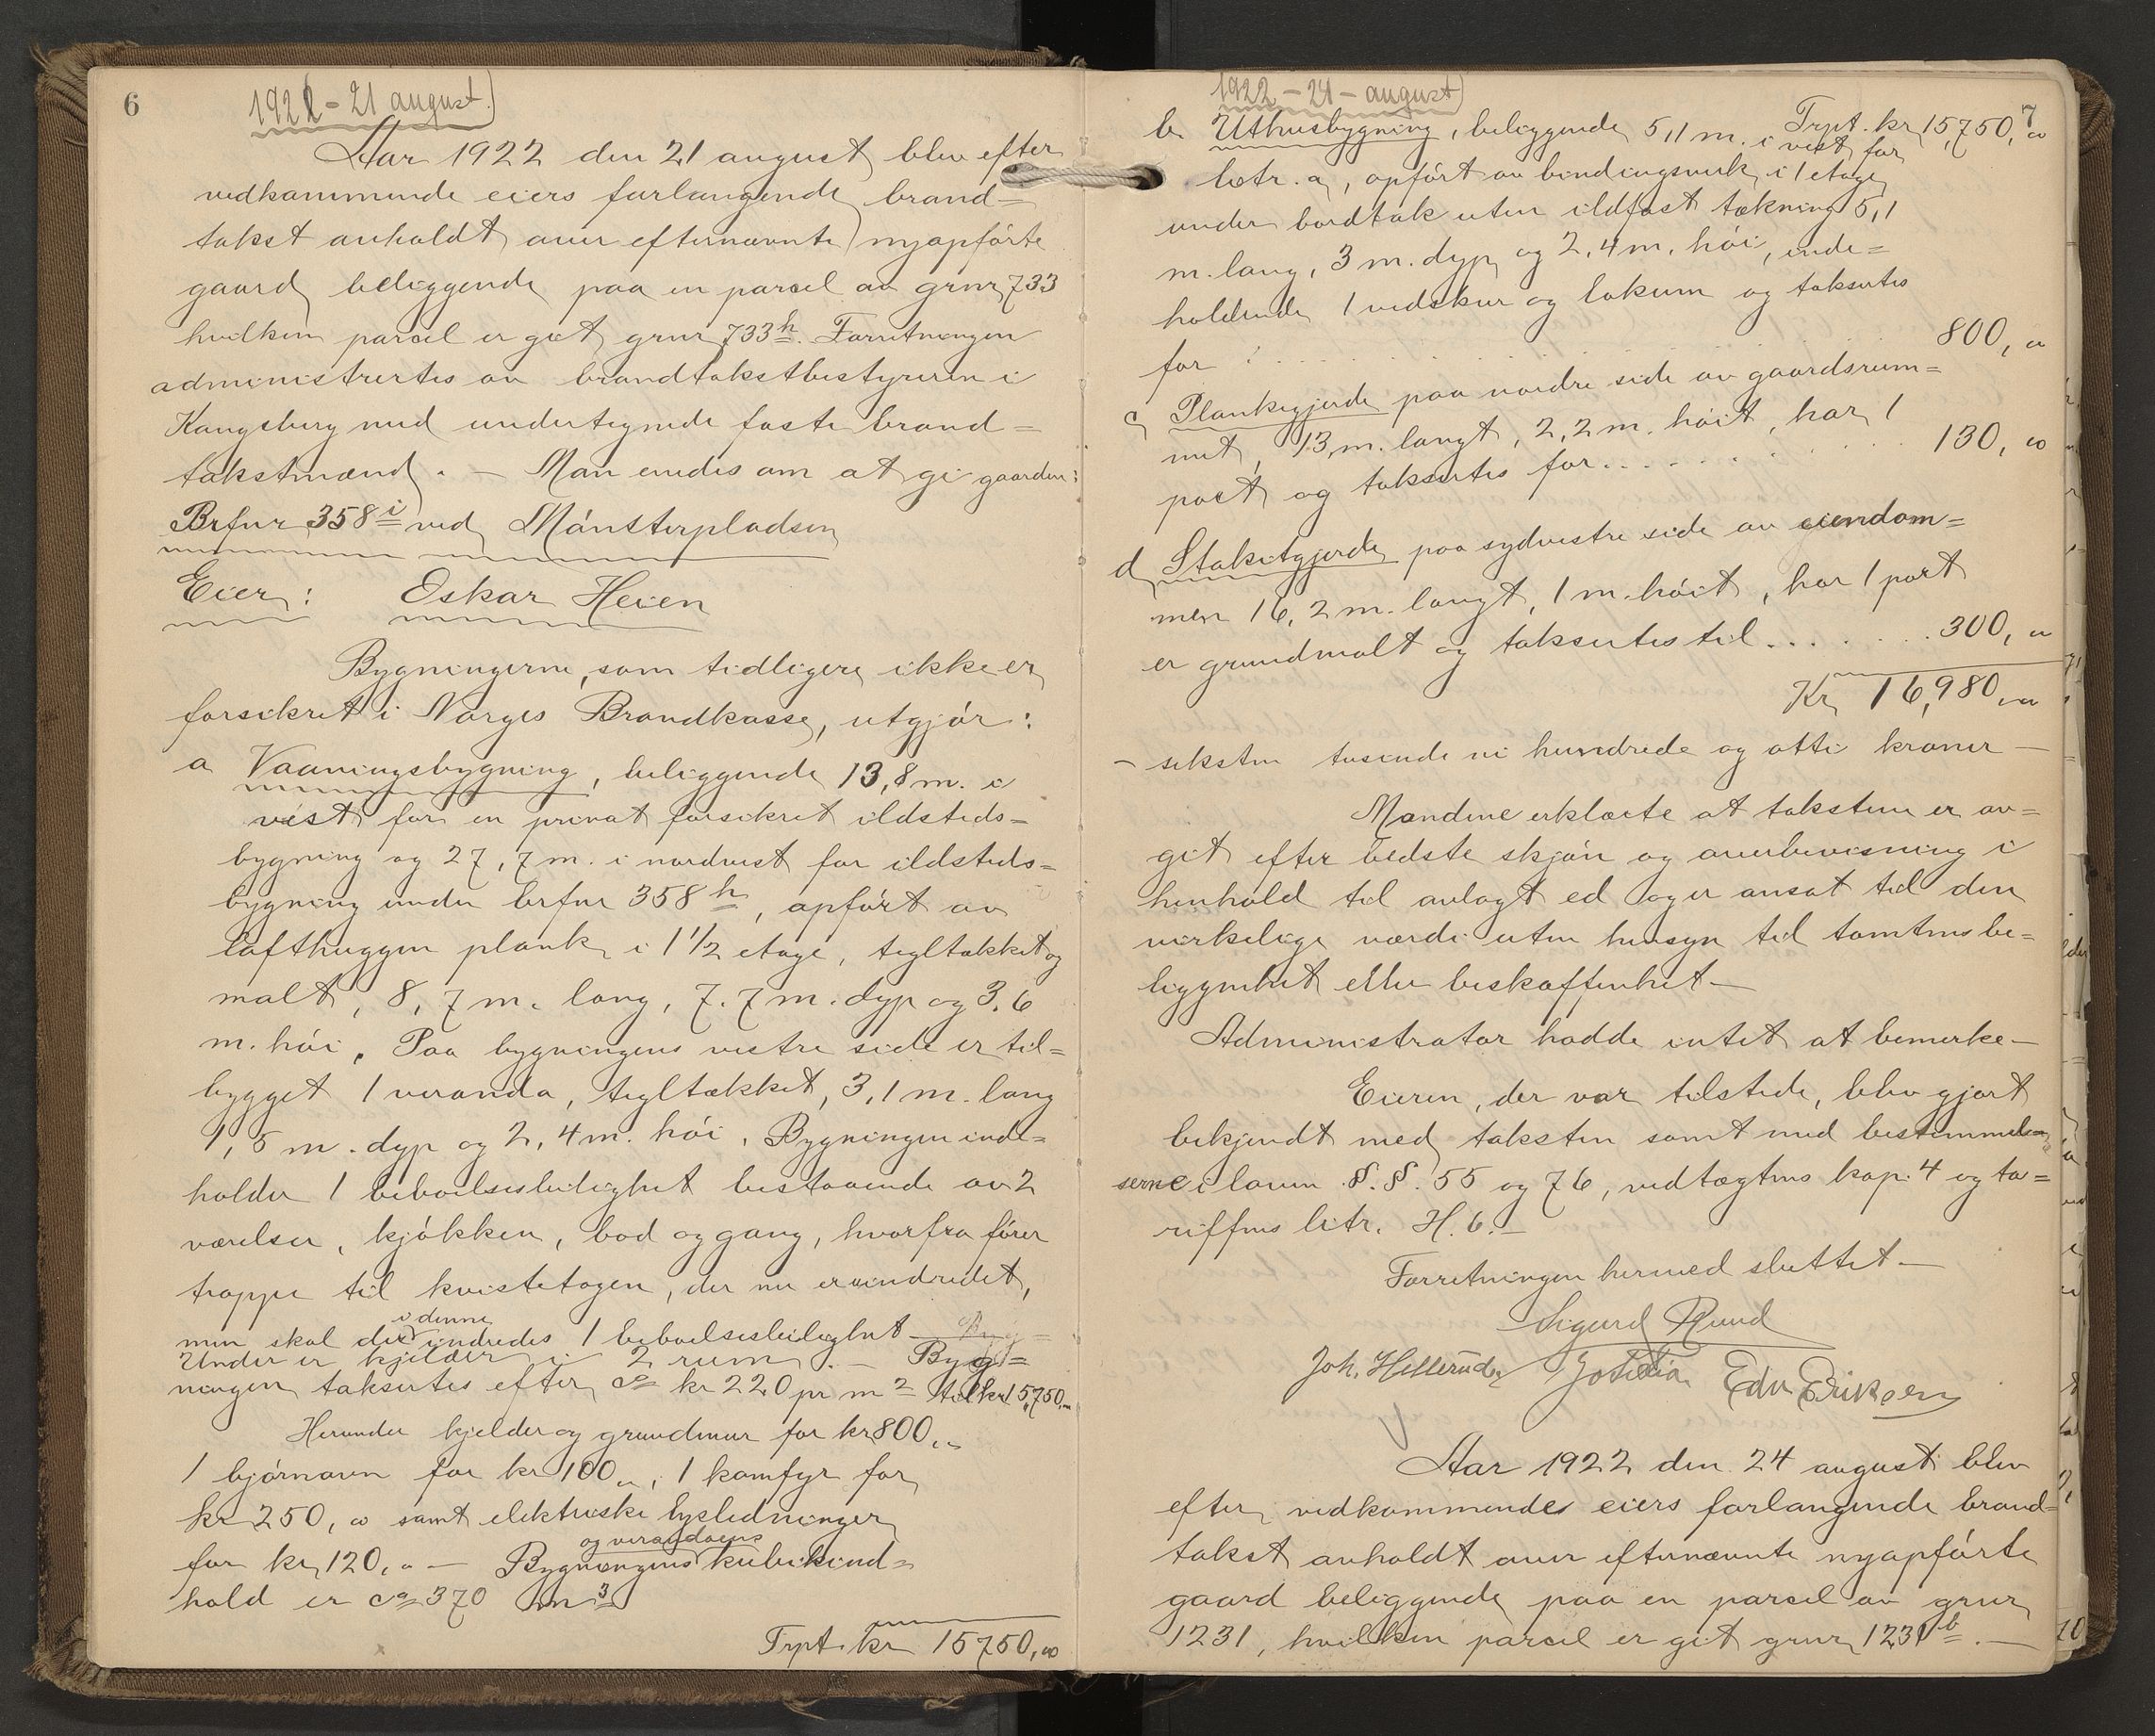 6
1922 - 21 august.)
Aar 1922 den 21 august blev efter
vedkommende eiers forlangende brand=
takst avholdt over efternævnte nyopførte
gaard beliggende paa en parcel av grnr 733
hvilken parcel er git grnr 733h. Forretningen
administrertes av brandtakstbestyreren i
Kongsberg med undertegnede faste brand=
takstmænd. — Man enedes om at gi gaarden:
Brfnr 358i ved Mønsterpladsen
Eier: Oskar Heien
Bygningerne, som tidligere ikke er
forsikret i Norges Brandkasse, utgjør:
a Vaaningsbygning, beliggende 13,8 m. i
vest for en privat forsikret ildsteds=
bygning og 27,7 m. i nordvest for ildsteds=
bygning under brfnr 358h, opført av
lafthuggen plank i 1 1/2 etage, tegltækket og
malt, 8,7 m. lang, 7.7 m. dyp og 3.6
m. høi. Paa bygningens vestre side er til=
bygget 1 veranda, tegltækket, 3,1 m. lang
1,5 m. dyp og 2,4 m. høi. Bygningen inde=
holder 1 beboelsesleilighet bestaaende av 2
værelser, kjøkken, bod og gang, hvorfra fører
trappe til kvistetagen, der nu er uindredet,
i denne
men skal der indredes 1 beboelsesleilighet — Byg=
Under er kjelder i 2 rum. — Byg=
ningen taksertes efter ca kr 220 pr m2 til kr 15,750,00
Herunder kjelder og grundmur for kr 800,00
1 bjørnovn for kr 100,00, 1 komfyr for
kr 250,00 samt elektriske lysledninger
og verandaens
for kr 120,00 — Bygningens kubikind=
hold er ca 370 m3
Trpt. kr 15750,00
7
1922 - 21 - august)
Trpt. kr 15,750,00
b. Uthusbygning, beliggende 5,1 m. i vest for
litr. a, opført av bindingsverk i 1 etage
under bordtak uten ildfast tækning 5,1
m. lang, 3 m. dyp og 2,4 m. høi, inde=
holdende 1 vedskur og lokum og taksertes
for . . . . . . . . 800,00
c Plankegjerde paa nordre side av gaardsrum=
met, 13 m. langt, 2,2 m. høit, har 1
port og taksertes for . . . . . . 130,00
d Stakitgjerde paa sydvestre side av eiendom=
men 16,2 m. langt, 1 m. høit, har 1 port
er grundmalt og taksertes til . . . . . . 300,00
Kr 16,980,00
— seksten tusende ni hundrede og otti kroner —
Mændene erklærte at taksten er av=
git efter bedste skjøn og overbevisning i
henhold til avlagt ed og er ansat til den
virkelige værdi uten hensyn til tomtens be=
liggenhet eller beskaffenhet —
Administrator hadde intet at bemerke —
Eieren, der var tilstede, blev gjort
bekjendt med taksten samt med bestemmel=
serne i loven §.§. 55 og 76, vedtægtens kap. 4 og ta=
riffens litr. H. 6. —
Forretningen hermed sluttet —
Sigurd Ruud
Joh. Hellerud Edv. Eriksen
Aar 1922 den 24 august blev
efter vedkommendes eiers forlangende brand=
takst avholdt over efternævnte nyopførte
gaard beliggende paa en parcel av grnr
1231, hvilken parcel er git grnr 1231b. —